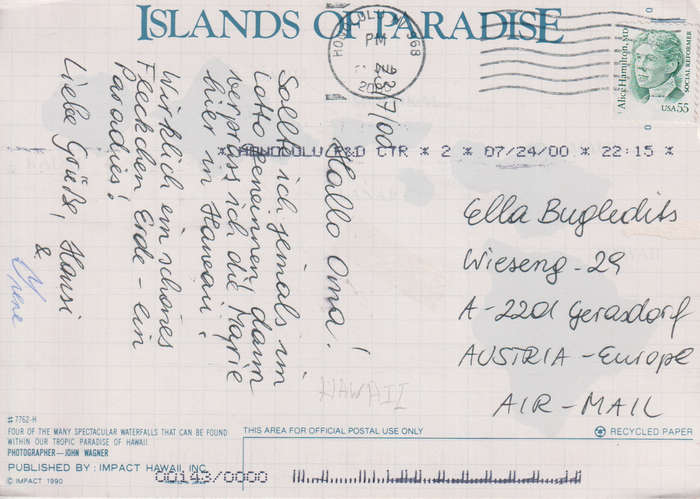 ISLANDS OF PARADISE
HONOLULU, HI 968
PM
24
200
Alice Hamilton, MD
SOCIAL REFORMER
USA 55
*HONOLULU P&D CTR * 2 * 07/24/00 * 22:15 *
23/7/00
Hallo Oma!
Sollte ich jemals im
Lotto gewinnen, dann
verprass ich die Marie
hier in Hawaii!
Wirklich ein schönes
Fleckchen Erde - ein
Paradies!
Liebe Grüße, Hansi
&
Irene
Ella Bugledits
Wieseng-29
A-2201 Gerasdorf
AUSTRIA-Europe
AIR-MAIL
HAWAII
#7762-H
FOUR OF THE MANY SPECTACULAR WATERFALLS THAT CAN BE FOUND
WITHIN OUR TROPIC PARADISE OF HAWAII
PHOTOGRAPHER—JOHN WAGNER
PUBLISHED BY: IMPACT HAWAII, INC.
© IMPACT 1990
THIS AREA FOR OFFICIAL POSTAL USE ONLY
RECYCLED PAPER
00143/0000